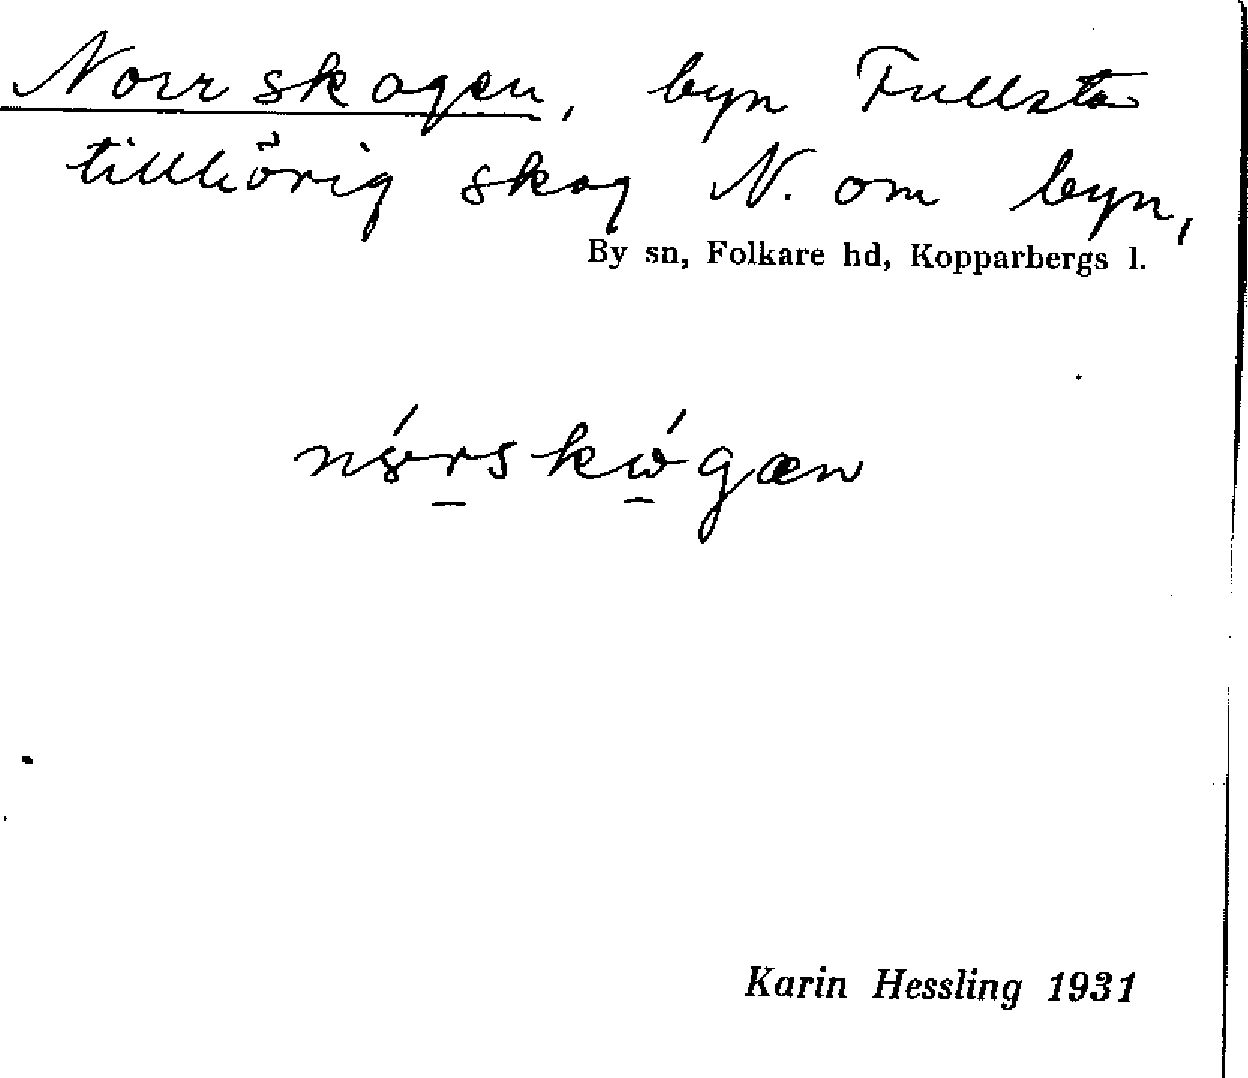 Norrskogen, byn Fullsta
tillhörig skog N. om byn,
By sn, Folkare hd, Kopparbergs l.
Karin Hessling 1931